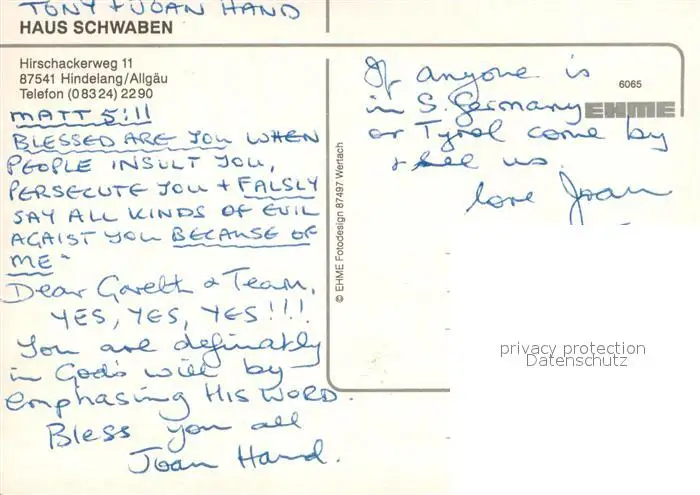 TONY + JOAN HAND
HAUS SCHWABEN
Hirschackerweg 11
87541 Hindelang/Allgäu
Telefon (0 83 24) 22 90
MATT 5:11
BLESSED ARE YOU WHEN
PEOPLE INSULT YOU,
PERSECUTE YOU + FALSLY
SAY ALL KINDS OF EVIL
AGAIST YOU BECAUSE OF
ME"
Dear Gareth & Team,
YES, YES, YES!!!
You are definatly
in God's will by
emphasing HIS WORD.
Bless you all
Joan Hand.
© EHME Fotodesign 87497 Wertach
If anyone is
in S. Germany
or Tyrol come by
+ see us.
love Joan
6065
EHME
privacy protection
Datenschutz